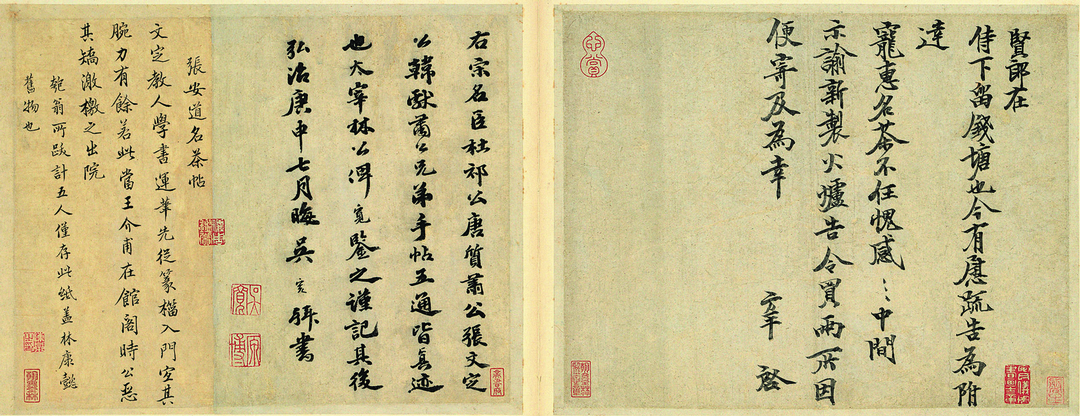 賢郎在
侍下留錢塘也今有慰疏告為附
達
寵惠名茶不任愧感〻中間
示諭新製火爐告令買兩所因
便寄及為幸 方平 啓
右宗名臣杜祁公唐質肅公張文定
公韓獻肅公兄弟手帖五通皆真迹
也太宰林公俾寬鑒之謹記其後
弘治庚申七月晦吳寬拜書
吳寬
原博
張安道名茶帖
文定教人學書運筆先從篆楷入門宜其
腕力有餘若此當王介甫在館閣時公惡
其矯激檄之出院
匏翁所跋計五人僅存此紙蓋林康懿
舊物也